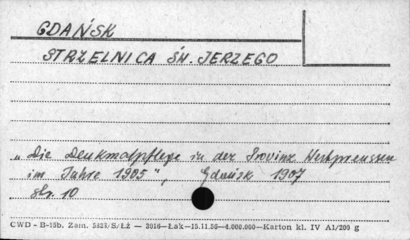 GDAŃSK
STRZELNICA ŚW. JERZEGO
„Die Denkmalpflege in der Provinz Westpreussen
im Jahre 1905", Gdańsk 1907
str. 10
CWD - B-15b. Zam. 5821/S/Łż — 2016—Łak—15.11.56—4.000.000—Karton kl. IV A1/209 g